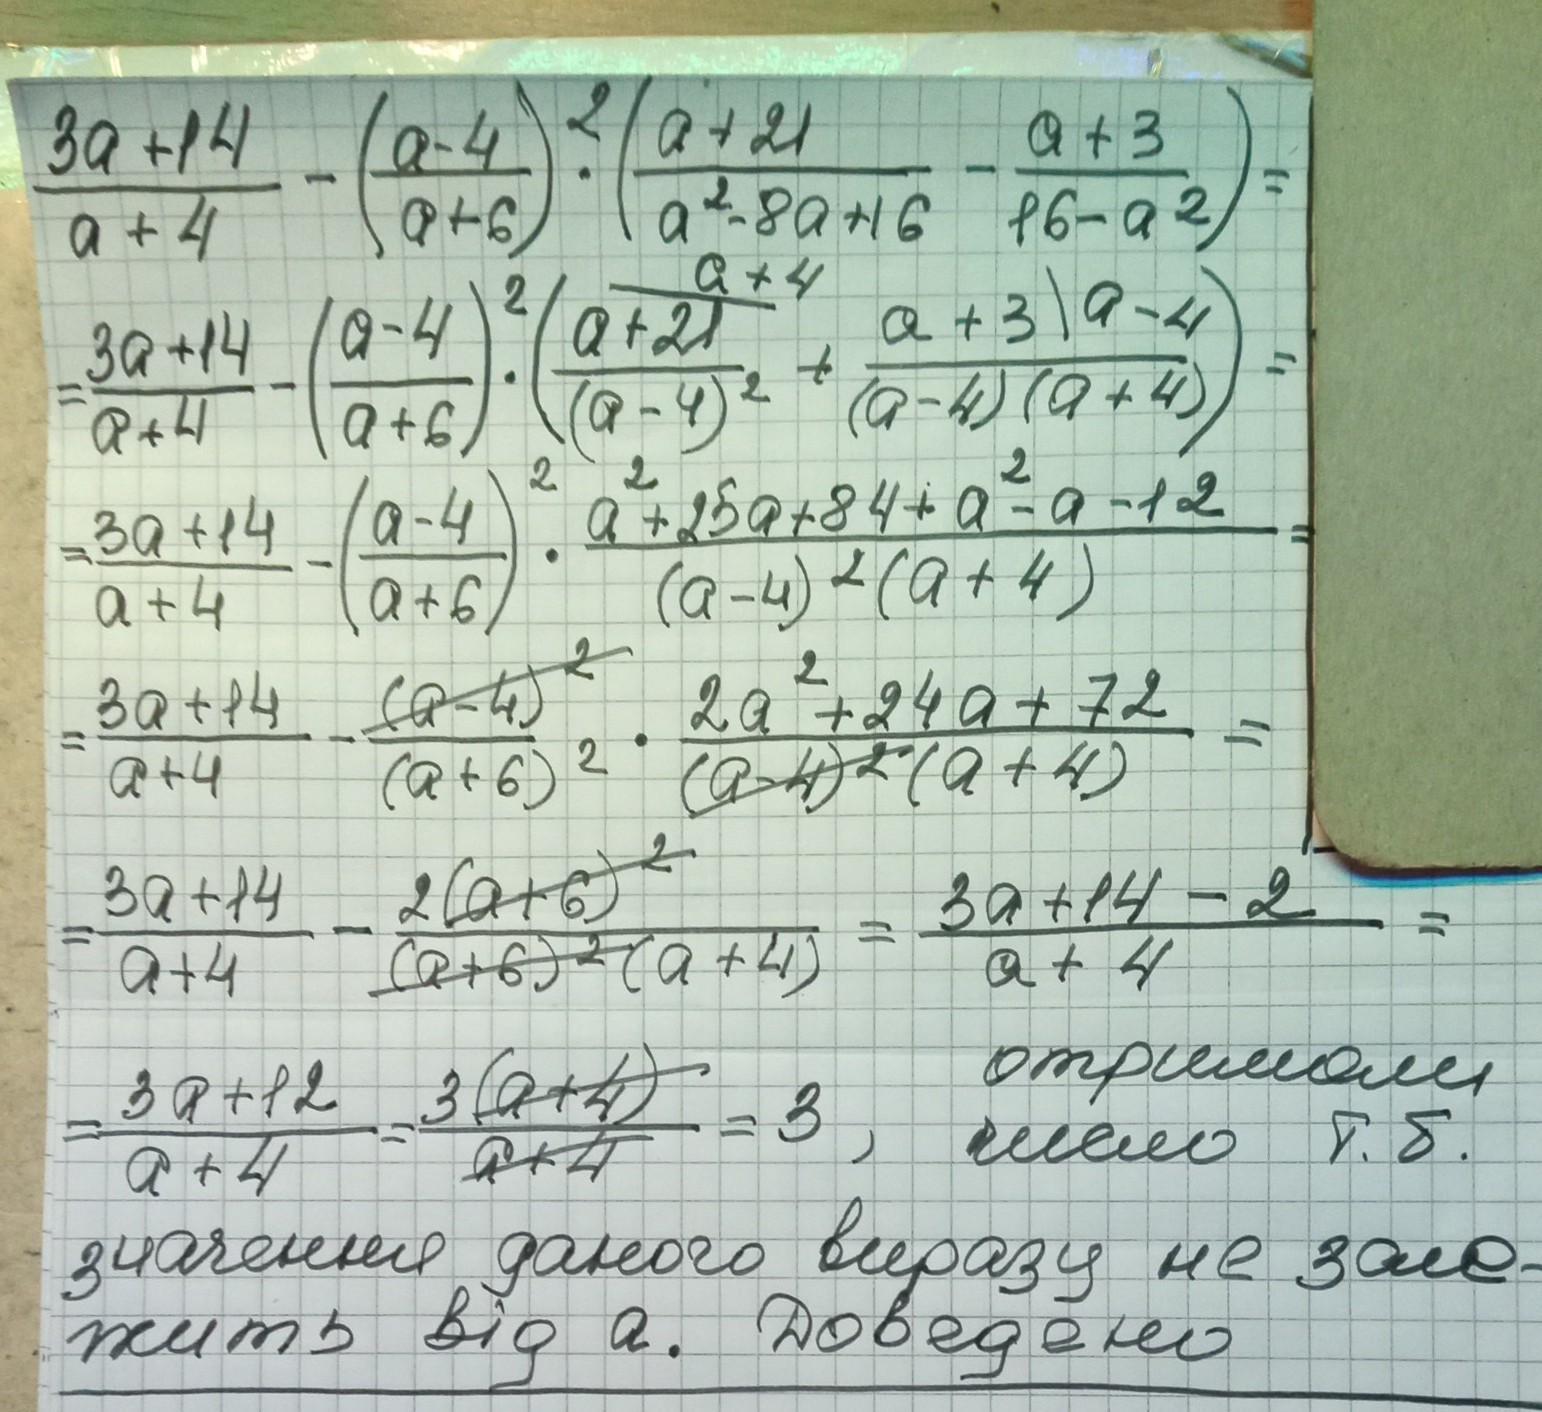 (3a+14)/(a+4) - ((a-4)/(a+6))² · ((a+21)/(a²-8a+16) - (a+3)/(16-a²)) =
= (3a+14)/(a+4) - ((a-4)/(a+6))² · ((a+21)/(a-4)² a+4 + (a+3\a-4)/((a-4)(a+4))) =
= (3a+14)/(a+4) - ((a-4)/(a+6))² · (a²+25a+84+a²-a-12)/((a-4)²(a+4)) =
= (3a+14)/(a+4) - (a-4)²/(a+6)² · (2a²+24a+72)/((a-4)²(a+4)) =
= (3a+14)/(a+4) - 2(a+6)²/((a+6)²(a+4)) = (3a+14-2)/(a+4) =
= (3a+12)/(a+4) = 3(a+4)/(a+4) = 3, отримали
число т.б.
значення даного виразу не зале-
жить від а. Доведено